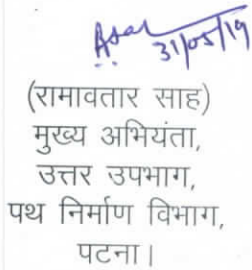 31/05/19
(रामावतार साह)
मुख्य अभियंता,
उत्तर उपभाग,
पथ निर्माण विभाग,
पटना।